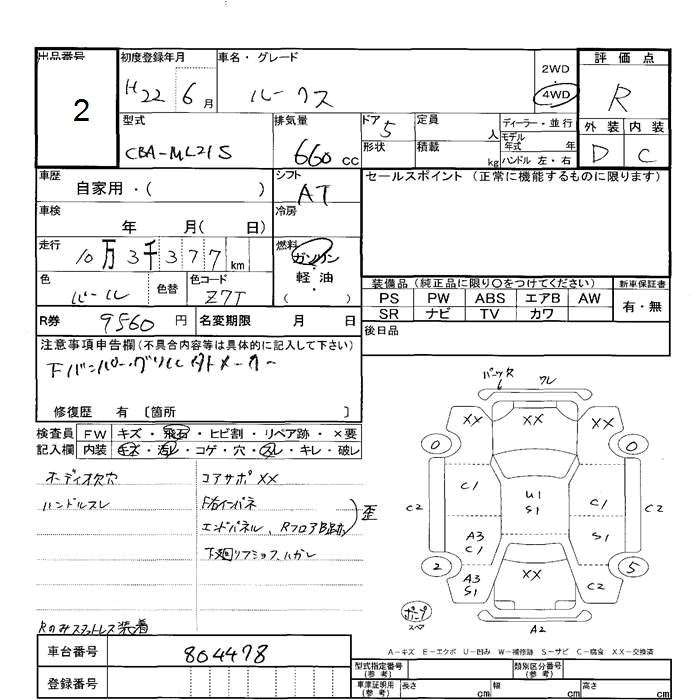 出品番号
2
初度登録年月
H22 6月
車名・グレード
ルークス
2WD
・
4WD
評価点
R
型式
CBA-ML21S
排気量
660 cc
ドア 5
形状
定員
人
積載
kg
ディーラー・並行
モデル
年式 年
ハンドル 左・右
外装 内装
D C
車歴
自家用・( )
シフト
AT
セールスポイント (正常に機能するものに限ります)
車検
年 月( 日)
冷房
走行
10万3千377km
燃料
ガソリン
・
軽油
( )
色
パール
色替
色コード
Z7T
装備品 (純正品に限り○をつけてください)
新車保証書
PS PW ABS エアB AW
SR ナビ TV カワ
有・無
R券 9560円
名変期限 月 日
後日品
注意事項申告欄(不具合内容等は具体的に記入して下さい)
下バンパー、グリル
修復歴 有 〔箇所 〕
検査員
記入欄
FW キズ・飛石・ヒビ割・リペア跡・×要
内装 キズ・汚レ・コゲ・穴・スレ・キレ・破レ
オーディオ欠穴
ハンドルスレ
コアサポXX
エンドパネル、RフロアB跡
歪
Rのみスタットレス装着
パーツ欠
6
ワレ
XX XX XX
0 0
C1
U1
S1
C1
C2 C2
A3
C1
S1
2 5
A3
S1
XX
C2
スペア
A2
A-キズ E-エクボ U-凹み W-補修跡 S-サビ C-腐食 XX-交換済
車台番号 804478
登録番号
型式指定番号
(参考)
類別区分番号
(参考)
車庫証明用
(参考)
長さ cm 幅 cm 高さ cm